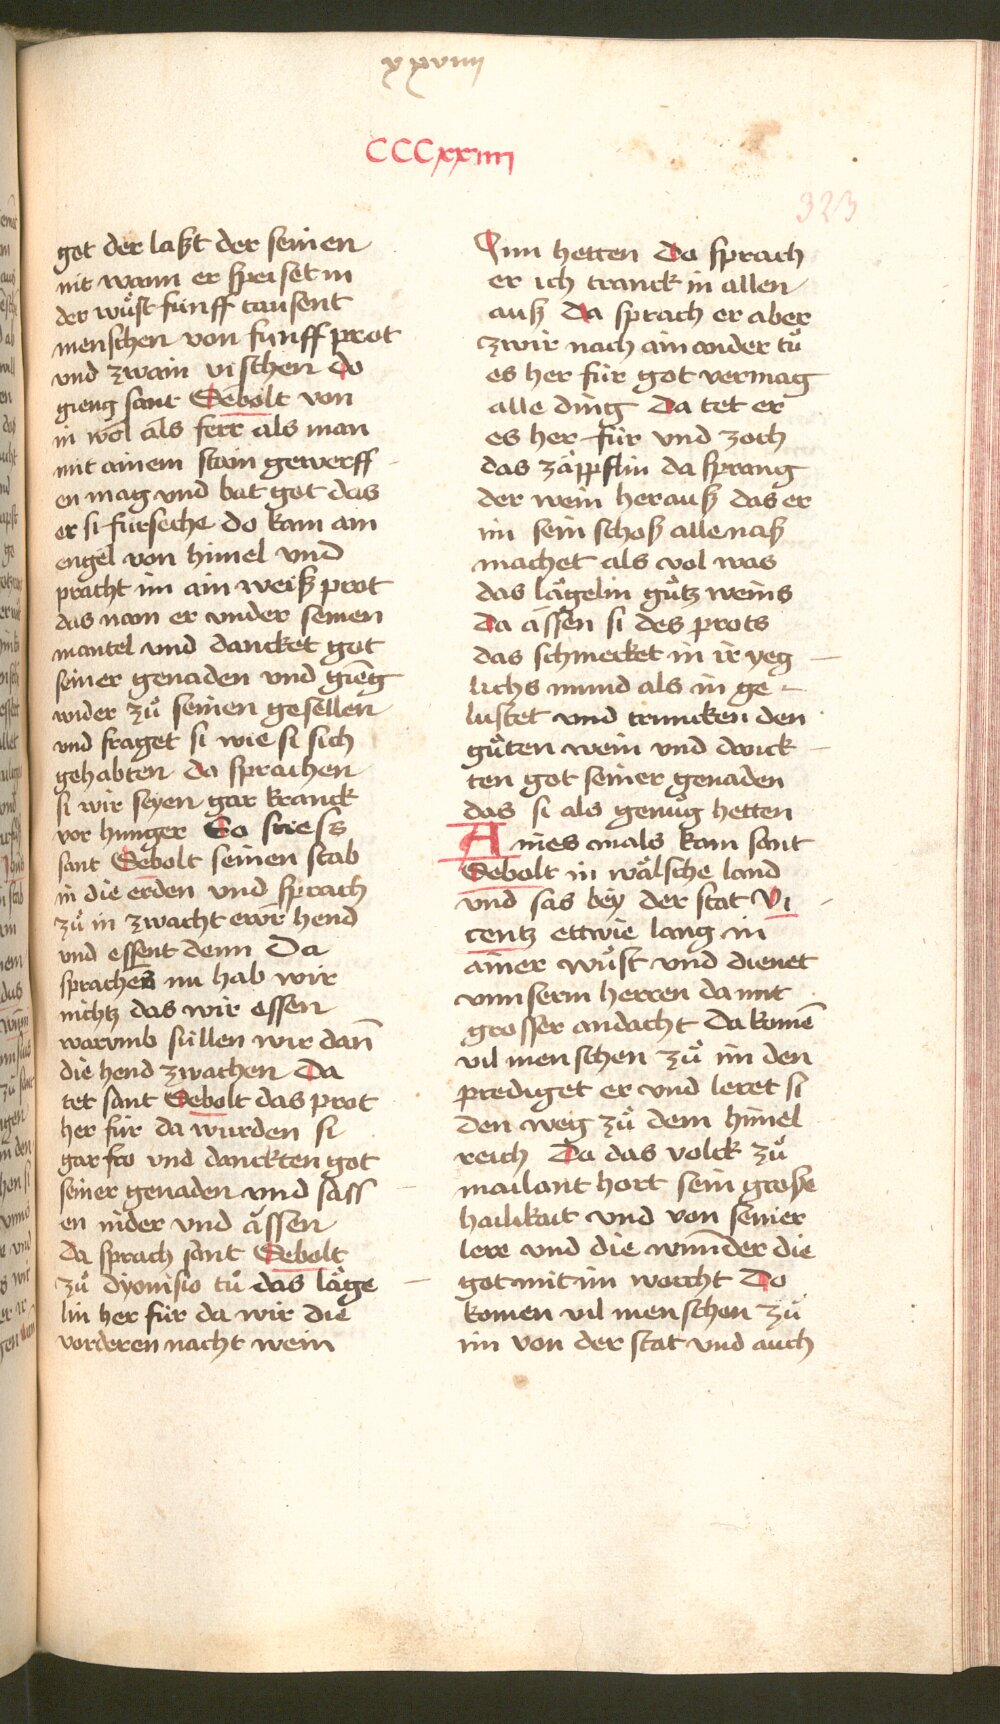 xxviiii
CCCxxiiii
323
got der laßt der seinen
nit wann er speiset in
der wuͤst funff tausent
menschen von funff prot
vnd zwain vischen Do
gieng sant Sebolt von
in wol als ferr als man
mit ainem stain gewerff
en mag vnd bat got das
er si fürsehe do kam am
engel von himel vnd
pracht im ain weiß prot
das nam er vnder seinen
mantel vnd dancket got
seiner genaden vnd gieng
wider zuͦ seinen gesellen
vnd fraget si wie si sich
gehabten da sprachen
si wir seyen gar kranck
vor hunger Do stiess
sant Sebolt seinen stab
in die erden vnd sprach
zuͦ in zwacht ewr hend
vnd essent denn Da
sprachen nu hab wir
nichtz das wir essen
warumb süllen wir dañ
die hend zwachen Da
tet sant Sebolt das prot
her für da wurden si
gar fro vnd danckten got
seiner genaden vnd sass
en nider vnd aͤssen
da sprach sant Sebolt
zuͦ dyonisio tuͦ das laͤge
lin her für da wir die
vorderen nacht wein
Inn hetten Da sprach
er ich tranck in allen
auß Da sprach er aber
zwir nach ain ander tuͦ
es her für got vermag
alle ding Da tet er
es her für vnd zoch
das zäppflin da sprang
der wein herauß das er
im sein schoß alle naß
machet als vol was
das laͤgelin guͦtz weins
Da aͤssen si des prots
das schmecket in ir yeg
lichs mund als in ge
lustet vnd truncken den
guͦten wein vnd danck
ten got seiner genaden
das si als genuͦg hetten
Aines mals kam sant
Sebolt in waͤlsche land
vnd sas bey der stat Vi
centz ettwie lang in
ainer wuͤst vnd dienet
vnnserm herren da mit
grosser andacht Da komeñ
vil menschen zuͦ im den
prediget er vnd leret si
den weg zuͦ dem himel
reich Da das volck zuͦ
mailant hort sein große
hailikait vnd von seiner
lere vnd die wunder die
got mit im worcht Do
komen vil menschen zuͦ
im von der stat vnd auch